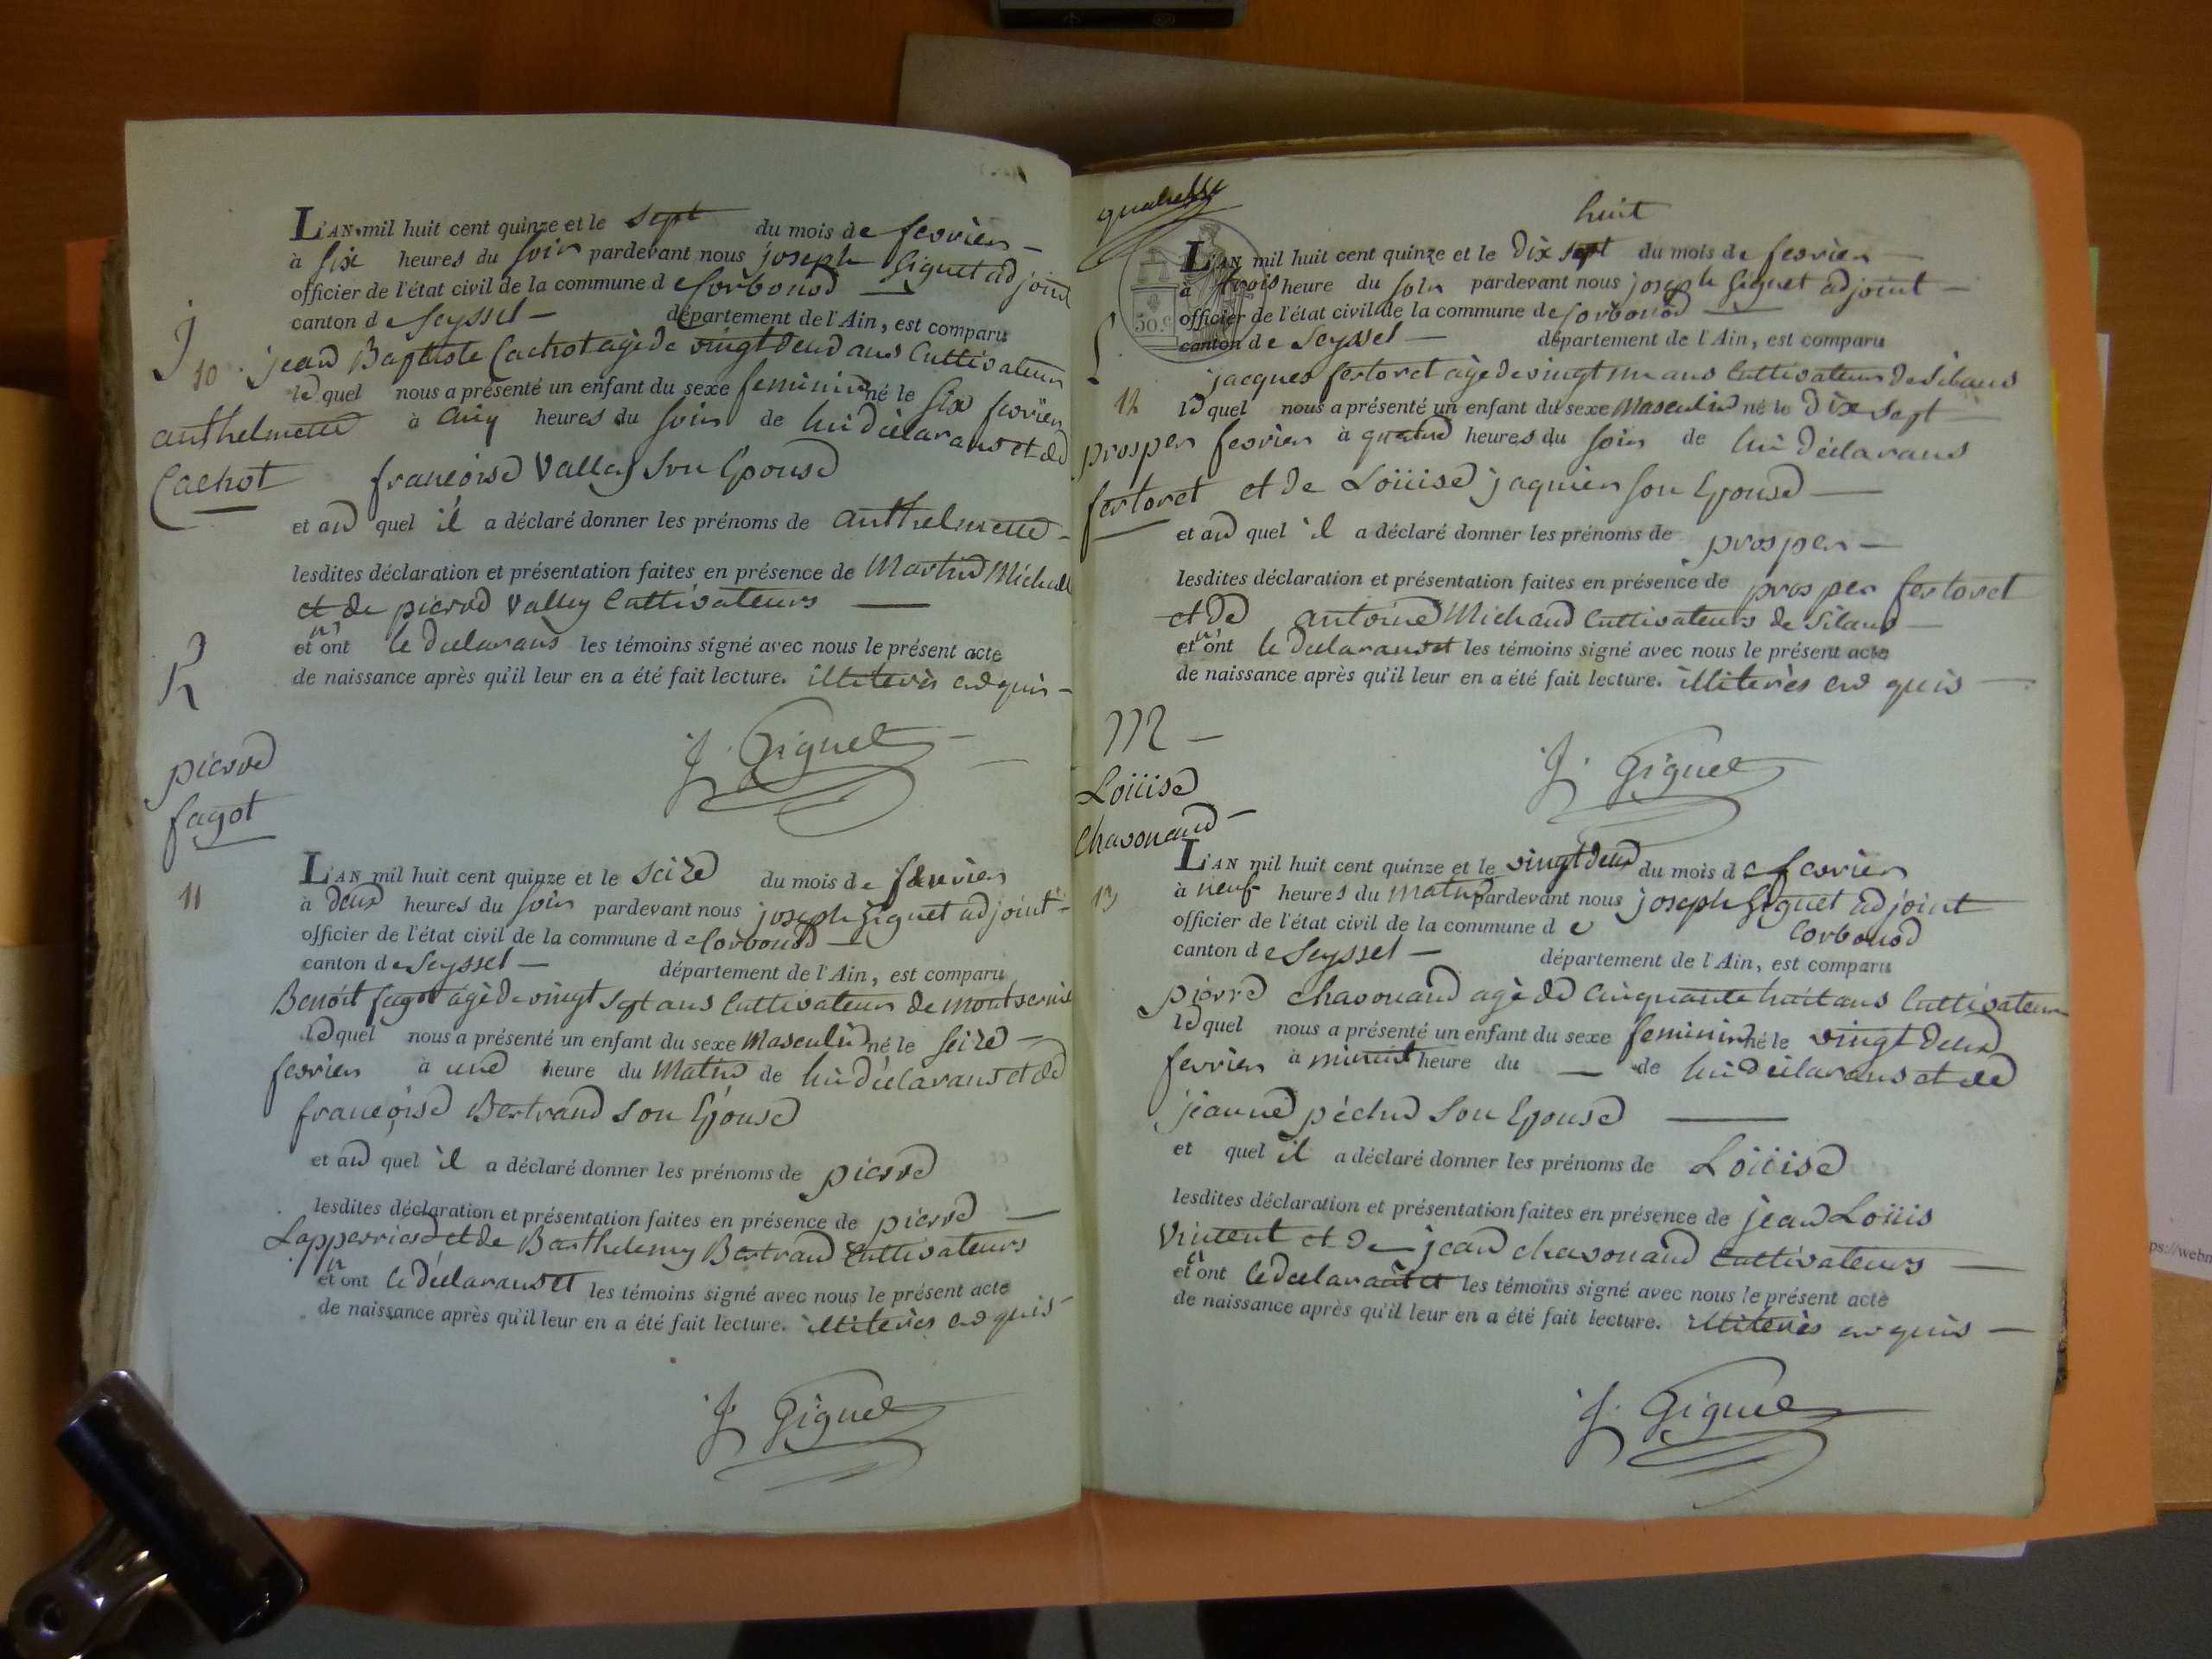 L'AN mil huit cent quinze et le sept du mois de fevrier
à six heures du soir pardevant nous joseph Giguet adjoint
officier de l'état civil de la commune de Corbonod
canton de Seyssel département de l'Ain, est comparu
10 jean Baptiste Cachot agé de vingt deux ans Cultivateur
lequel nous a présenté un enfant du sexe feminin né le six fevrier
anthelmette à cinq heures du soir de lui déclarant et de
Cachot françoise Valley son Epouse
et au quel il a déclaré donner les prénoms de anthelmette
lesdites déclaration et présentation faites en présence de Martin Michall
et de pierre Valley Cultivateurs
et n'ont le declarans les témoins signé avec nous le présent acte
de naissance après qu'il leur en a été fait lecture. illiterès enquis
J. Giguet
pierre
fagot
11
L'AN mil huit cent quinze et le seize du mois de fevrier
à deux heures du soir pardevant nous joseph Giguet adjoint
officier de l'état civil de la commune de Corbonod
canton de Seyssel département de l'Ain, est comparu
Benoit fagot agé de vingt sept ans Cultivateur de
lequel nous a présenté un enfant du sexe Masculin né le seize
fevrier à une heure du Matin de lui déclarant et de
françoise Bertrand son Epouse
et au quel il a déclaré donner les prénoms de pierre
lesdites déclaration et présentation faites en présence de pierre
et de Barthelemy Bertrand Cultivateurs
et n'ont le déclarant et les témoins signé avec nous le présent acte
de naissance après qu'il leur en a été fait lecture. illiterès enquis
J. Giguet
huit
L'AN mil huit cent quinze et le dix sept du mois de fevrier
à trois heure du soir pardevant nous joseph Giguet adjoint
officier de l'état civil de la commune de Corbonod
canton de Seyssel département de l'Ain, est comparu
50.c
jacques fertoret agé de vingt un ans Cultivateur de silans
12 lequel nous a présenté un enfant du sexe Masculin né le dix sept
prosper fevrier à quatre heures du soir de lui déclarans
fertoret et de Loüise jaquier son Epouse
et au quel il a déclaré donner les prénoms de prosper
lesdites déclaration et présentation faites en présence de prosper fertoret
et de antoine Michaud Cultivateurs de silans
et n'ont le declarant et les témoins signé avec nous le présent acte
de naissance après qu'il leur en a été fait lecture. illiterès enquis
J. Giguet
M
Loüise
Chavouand
13
L'AN mil huit cent quinze et le vingt deux du mois de fevrier
à neuf heures du matin pardevant nous joseph Giguet adjoint
officier de l'état civil de la commune de Corbonod
canton de Seyssel département de l'Ain, est comparu
pierre chavouand agé de cinquante huit ans Cultivateur
lequel nous a présenté un enfant du sexe feminin né le vingt deux
fevrier à minuit heure du de lui déclarans et de
jeanne péclud son Epouse
et quel il a déclaré donner les prénoms de Loüise
lesdites déclaration et présentation faites en présence de jean Loüis
Vincent et de jean chavouand Cultivateurs
et n'ont le declarant et les témoins signé avec nous le présent acte
de naissance après qu'il leur en a été fait lecture. illiterès enquis
J. Giguet